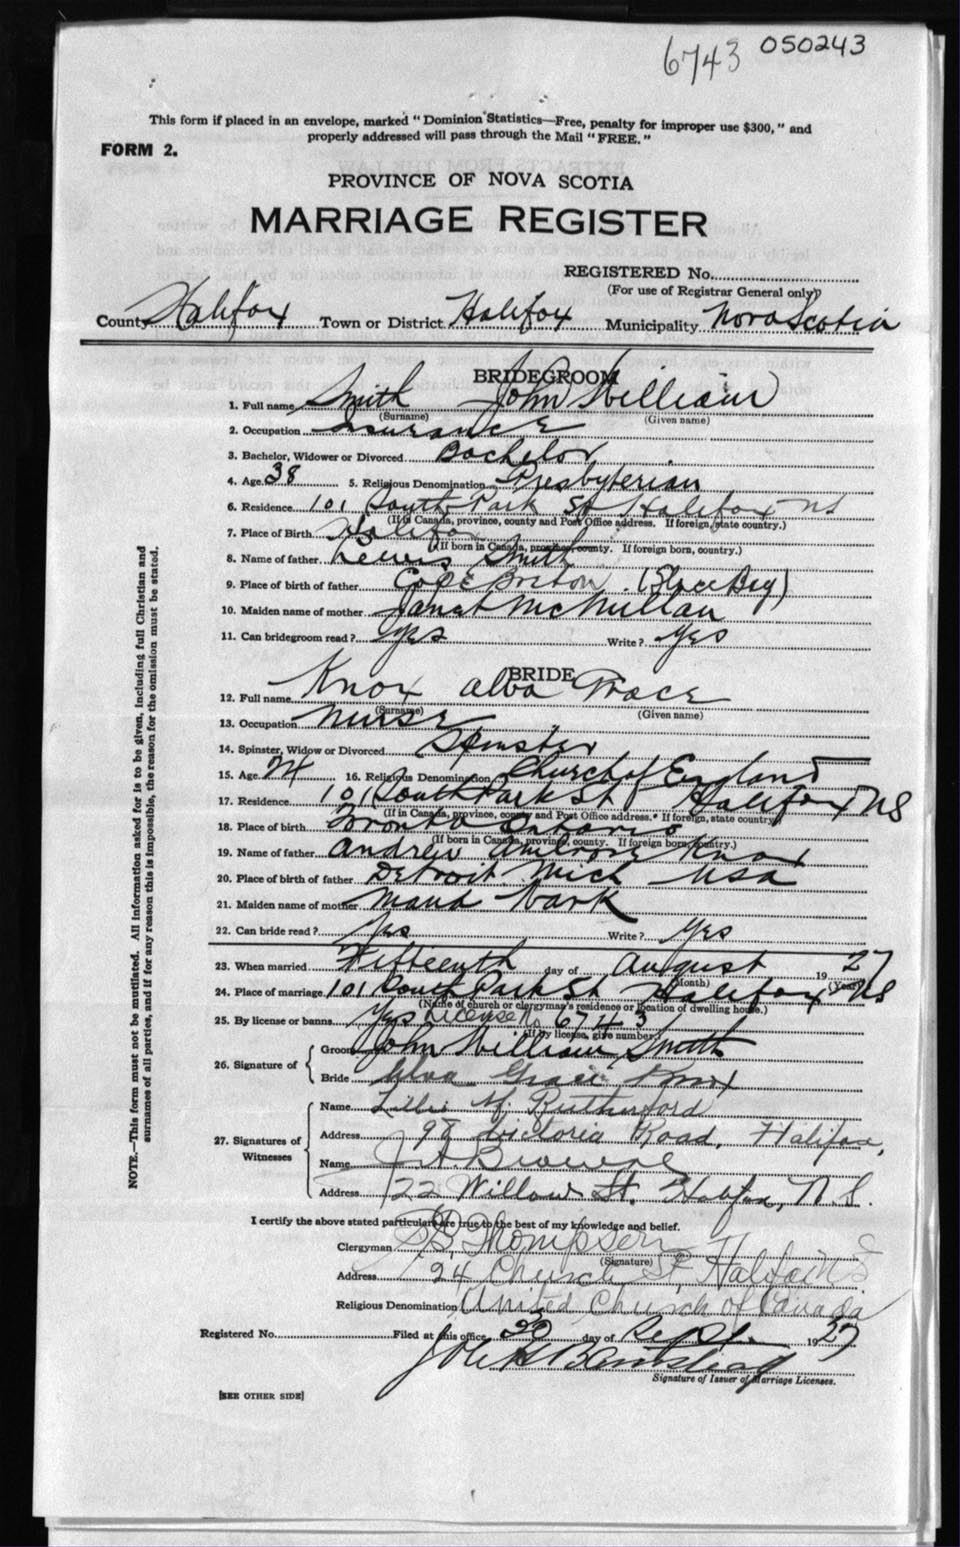 6743 050243
This form if placed in an envelope, marked "Dominion Statistics—Free, penalty for improper use $300," and
properly addressed will pass through the Mail "FREE."
FORM 2.
PROVINCE OF NOVA SCOTIA
MARRIAGE REGISTER
REGISTERED No.
(For use of Registrar General only)
County Halifax Town or District Halifax Municipality Nova Scotia
BRIDEGROOM
1. Full name Smith John William
(Surname) (Given name)
2. Occupation Insurance
3. Bachelor, Widower or Divorced Bachelor
4. Age 38 5. Religious Denomination Presbyterian
6. Residence 101 South Park St Halifax NS
(If in Canada, province, county and Post Office address. If foreign, state country.)
7. Place of Birth Halifax
(If born in Canada, province, county. If foreign born, country.)
8. Name of father Lewis Smith
9. Place of birth of father Cape Breton
10. Maiden name of mother Janet McMillan
11. Can bridegroom read? Yes Write? Yes
BRIDE
12. Full name Knox Alva Grace
(Surname) (Given name)
13. Occupation Nurse
14. Spinster, Widow or Divorced Spinster
15. Age 24 16. Religious Denomination Church of England
17. Residence 101 South Park St Halifax NS
(If in Canada, province, county and Post Office address. If foreign, state country.)
18. Place of birth Toronto Ontario
(If born in Canada, province, county. If foreign born, country.)
19. Name of father Andrew Ambrose Knox
20. Place of birth of father Detroit Mich USA
21. Maiden name of mother Maud
22. Can bride read? Yes Write? Yes
23. When married Fifteenth day of August 1927
(Month) (Year)
24. Place of marriage 101 South Park St Halifax NS
(Name of church or clergyman's residence or location of dwelling house.)
25. By license or banns Yes License No 6743
(If by license, give number.)
26. Signature of
Groom John William Smith
Bride Alva Grace Knox
27. Signatures of Witnesses
Name Lillie M. Rutherford
Address Victoria Road, Halifax,
Name J. A. Browne
Address 122 Willow St. Halifax, N.S.
I certify the above stated particulars are true to the best of my knowledge and belief.
Clergyman Thompson
(Signature)
Address 24 Church St, Halifax NS
Religious Denomination United Church of Canada
Registered No. Filed at this office 20 day of Sept. 1927
Signature of Issuer of Marriage Licenses.
[SEE OTHER SIDE]
NOTE.—This form must not be mutilated. All information asked for is to be given, including full Christian and
surnames of all parties, and if for any reason this is impossible, the reason for the omission must be stated.